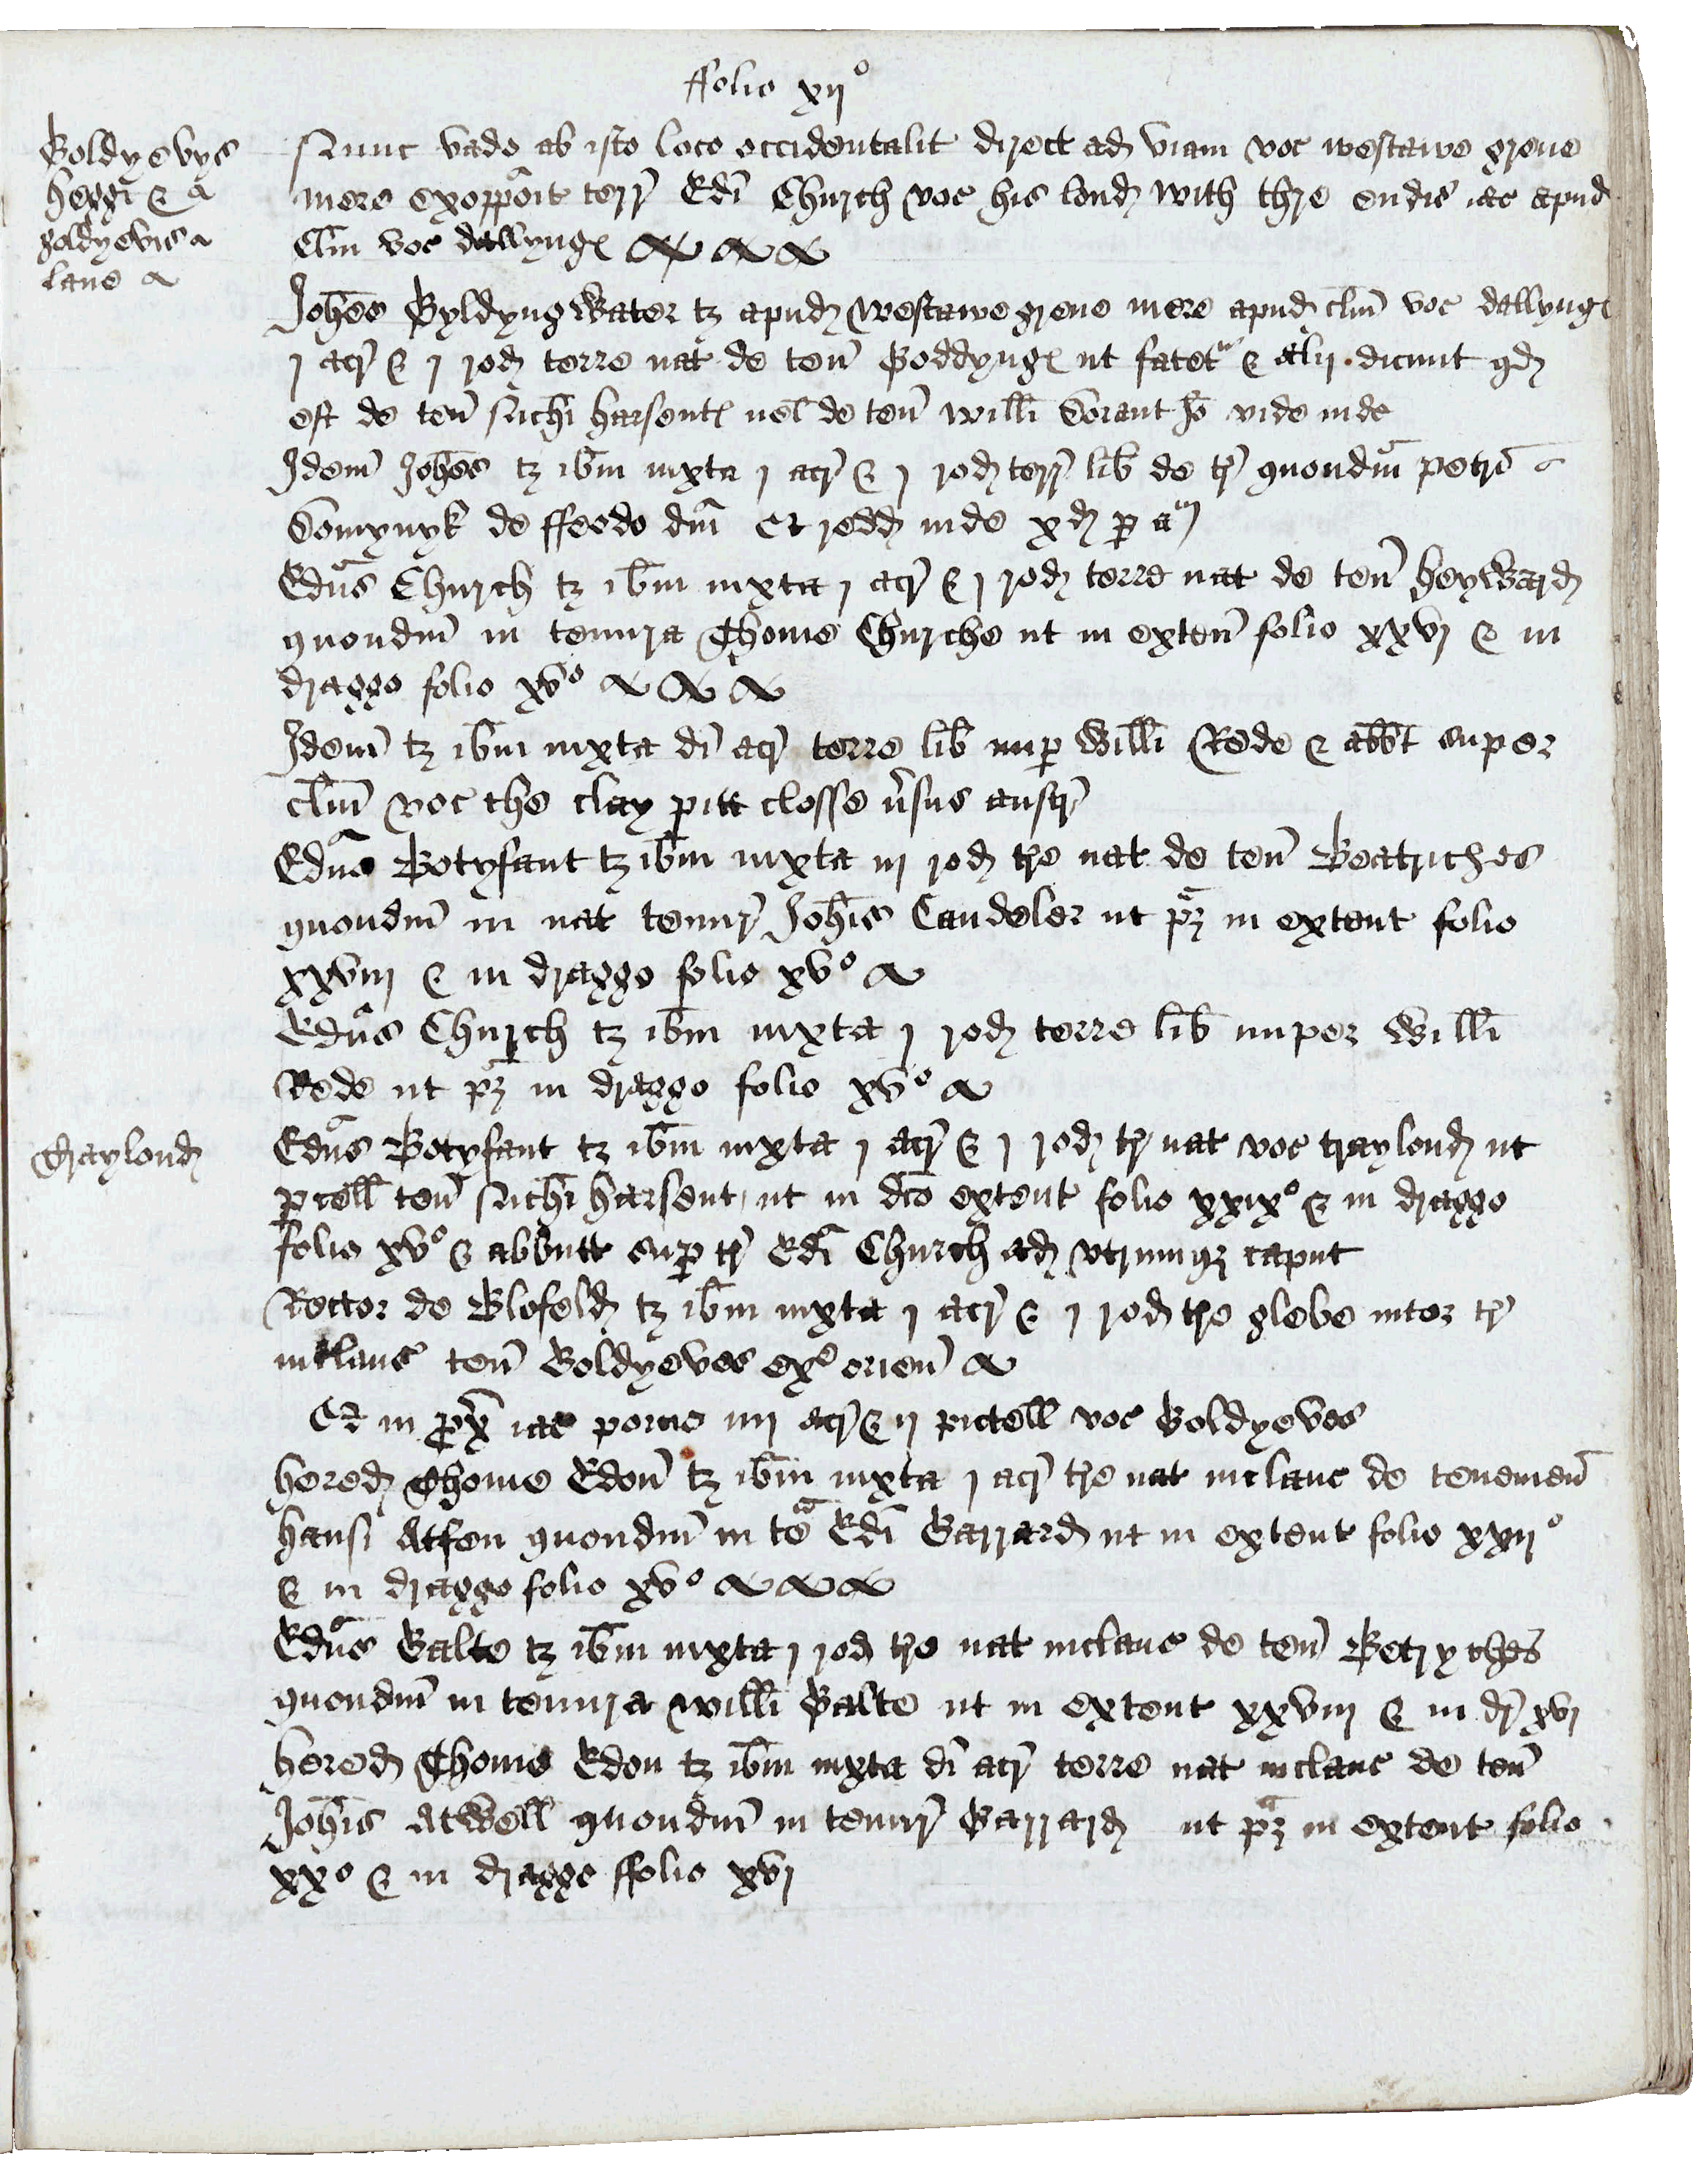 ffolio xij°
Boldyevys
heggi &
goldyevis
lane
Nunc vado ab isto loco occidentalit direct ad viam voc westawe grene
mere exopposit terr Edi Church voc his lond with thre endis iac apud
Clm voc dallyng
Johes Byldyngwater tz apud westawe grene mere apud clm voc dallyng
j acr & j rod terre nat de ten Goddyng ut fatet & alij dicunt qd
est de ten Nichi harsent vel de ten willi Sorant Io vide inde
Idem Johes tz ibm iuxta j acr & j rod terr lib de tr quondm petri
Somynyk de ffeodo dni Et redd inde xd p an
Edus Church tz ibm iuxta j acr & j rod terre nat de ten heyward
quondm in tenura Thome Churche ut in exten folio xxvj & in
dragge folio xv°
Idem tz ibm iuxta di acr terre lib nup Willi Rede & abbt super
clm voc the clay pitt closse vsus austr
Edus Botyfant tz ibm iuxta iij rod tre nat de ten Beatriches
quondm in nat tenur Johis Candeler ut pz in extent folio
xxviij & in dragge folio xv°
Edus Church tz ibm iuxta j rod terre lib nuper Willi
Rede ut pz in dragge folio xv°
Traylond
Edus Botyfant tz ibm iuxta j acr & j rod tr nat voc traylond ut
pcell ten Nichi harsent ut in dco extent folio xxix° & in dragge
folio xv° & abbutt sup tr Edi Church ad utrumqz caput
Rector de Blofeld tz ibm iuxta j acr & j rod tre glebe inter tr
inclaus ten Boldyeves ex° orien
Et in prx iac pecie iiij acr & ij pictell voc Goldyeves
hered Thome Edon tz ibm iuxta j acr tre nat inclaus de tenemen
hansi Atfen quondm in te Edi Garrard ut in extent folio xxij°
& in dragge folio xv°
Edus Galte tz ibm iuxta j rod tre nat inclaus de ten Betryches
quondm in tenura willi Galte ut in extent xxviij & in dr xvj
hered Thome Edon tz ibm iuxta di acr terre nat inclaus de ten
Johis Atwell quondm in tenur Garrard ut pz in extent folio
xx° & in dragge ffolio xvj